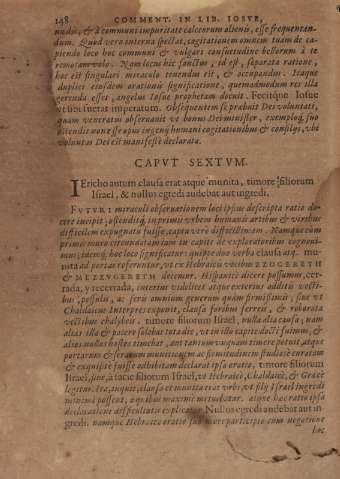 148 COMMENT. IN LIB. IOSVE,
nudis, & à communi impuritate calceorum alienis, esse frequentan-
dum. Quod vero interna spectat, cogitationem omnem tuam de ca-
piendo loco hoc communi & vulgari consuetudine bellorum à te
remotam volo. Nam locus hic sanctus, id est, separata ratione,
hoc est singulari miraculo tenendus est, & occupandus. Itaque
duplici eiusdem orationis significatione, quemadmodum res illa
gerenda esset, angelus Iosue prophetam docuit. Fecitque Iosue
vt sibi fuerat imperatum. Obsequentem se præbuit Dei voluntati,
quam veneratus obseruauit vt bonus Dei minister, exemploque suo
ostendit non esse opus ingenij humani cogitationibus & consilijs, vbi
voluntas Dei est manifeste declarata.
CAPVT SEXTVM.
IEricho autem clausa erat atque munita, timore filiorum
Israel, & nullus egredi audebat aut ingredi.
FVTVRI miraculi obseruationem loci ipsius descripta ratio do-
cere incipit, ostendit in primis vrbem humanis artibus & viribus
difficilem expugnatu fuisse, captu verò difficillimam. Namque cùm
primo muro circundatam iam in capite de exploratoribus cognoui-
mus; idemque hoc loco significatur: quippe duo verba clausa atque mu-
nita ad portas referuntur, vt ex Hebraicis vocibus ZZOGERETH
& MEZZVGERETH docemur. Hispanicè dicere possumus, cer-
rada, y recerrada, interius videlicet atque exterius additis vecti-
bus, pessulis, ac seris omnium generum quàm firmissimis; sine vt
Chaldaicus Interpres exponit, clausa foribus ferreis, & roborata
vectibus chalybeis. timore filiorum Israel, nulla alia causa; nam
aliàs illa & patere solebat tuta die, vt in illo capite docti fuimus, &
alios nullos hostes timebat, ante tantum nunquam timere potuit, atque
portarum & serarum munitionem ac firmitudinem studiosè curatam
& exquisitè fuisse adhibitam declarat ipsa oratio, timore filiorum
Israel, siue, à facie filiorum Israel, vt Hebraicè, Chaldaicè, & Græcè
legitur. Ita, inquit, clausa et munita erat vrbs, vt filij Israel ingredi
minimè possent, à quibus maximè metuebatur. atque hæc ratio ipsa
declaratione difficultatis explicatur. Nullus egredi audebat aut in-
gredi. namque Hebraica oratio sub duorum participio cum negatione
hoc